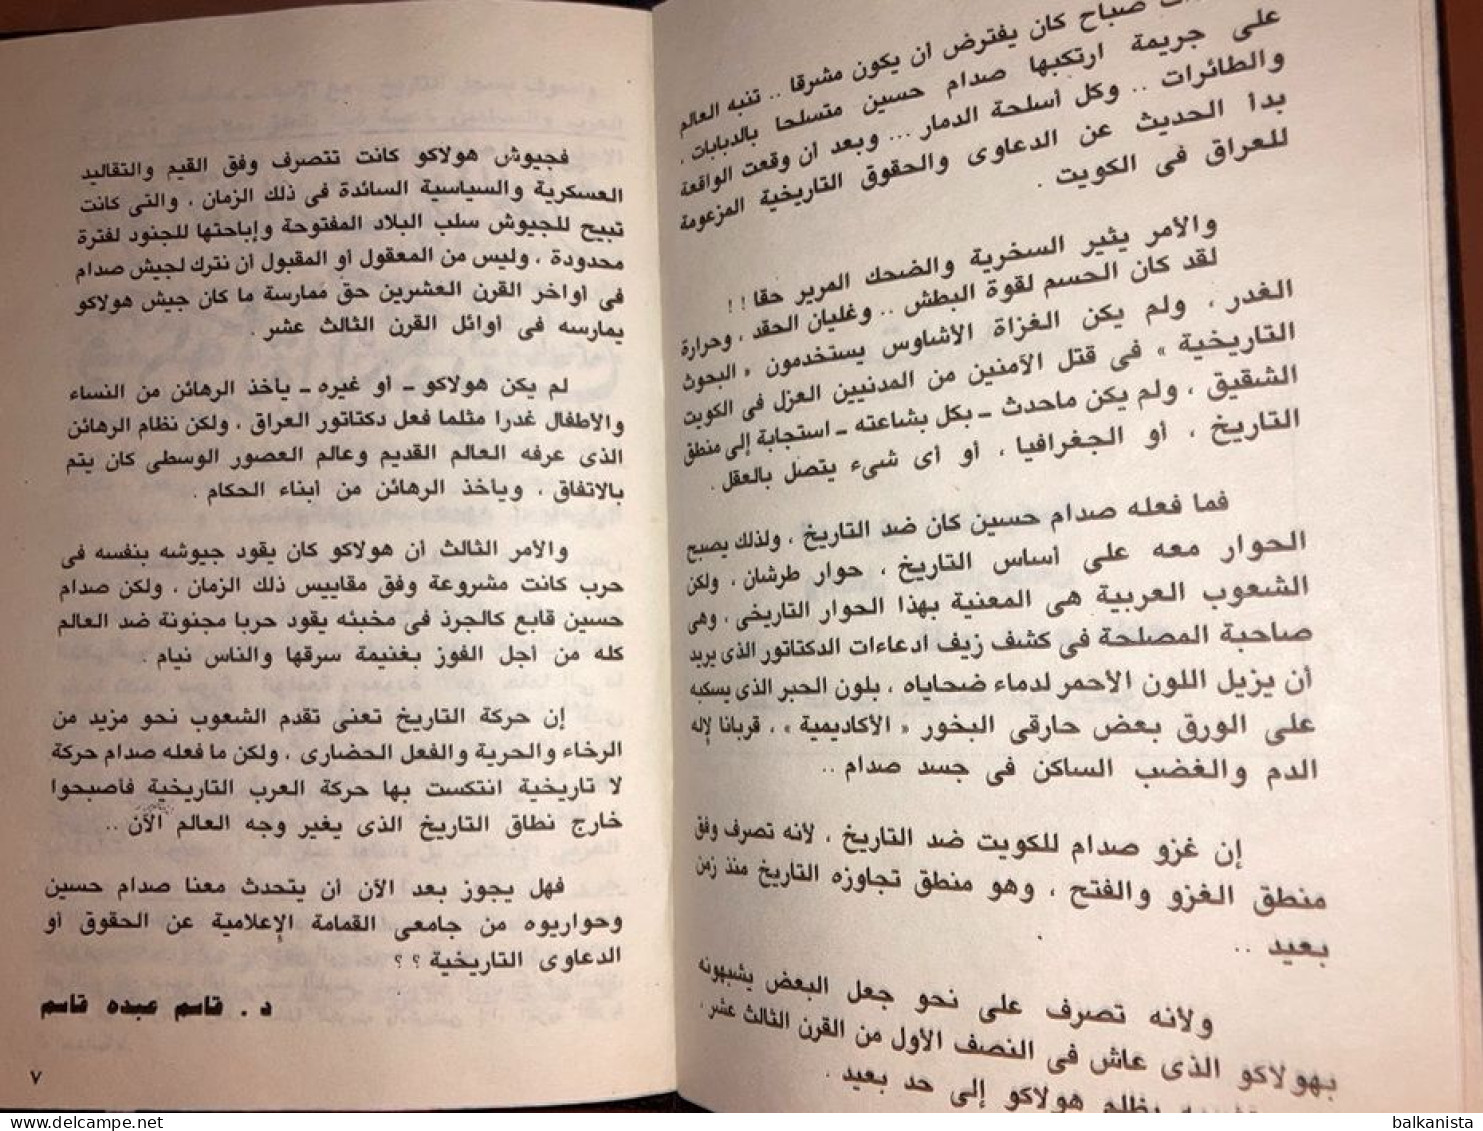 صباح كان يفترض أن يكون مشرقا .. تنبه العالم
على جريمة ارتكبها صدام حسين متسلحا بالدبابات ،
والطائرات .. وكل أسلحة الدمار ... وبعد أن وقعت الواقعة
بدأ الحديث عن الدعاوى والحقوق التاريخية المزعومة
للعراق فى الكويت .
والأمر يثير السخرية والضحك المرير حقا !!
لقد كان الحسم لقوة البطش .. وغليان الحقد ، وحرارة
الغدر ، ولم يكن الغزاة الأشاوس يستخدمون « البحوث
التاريخية » فى قتل الآمنين من المدنيين العزل فى الكويت
الشقيق ، ولم يكن ماحدث ــ بكل بشاعته ــ استجابة إلى منطق
التاريخ ، أو الجغرافيا ، أو أى شىء يتصل بالعقل .
فما فعله صدام حسين كان ضد التاريخ ، ولذلك يصبح
الحوار معه على أساس التاريخ ، حوار طرشان ، ولكن
الشعوب العربية هى المعنية بهذا الحوار التاريخى ، وهى
صاحبة المصلحة فى كشف زيف ادعاءات الدكتاتور الذى يريد
أن يزيل اللون الأحمر لدماء ضحاياه ، بلون الحبر الذى يسكبه
على الورق بعض حارقى البخور « الأكاديمية » ، قربانا لإله
الدم والغضب الساكن فى جسد صدام ..
إن غزو صدام للكويت ضد التاريخ ، لأنه تصرف وفق
منطق الغزو والفتح ، وهو منطق تجاوزه التاريخ منذ زمن
بعيد ..
ولأنه تصرف على نحو جعل البعض يشبهونه
بهولاكو الذى عاش فى النصف الأول من القرن الثالث عشر ،
يظلم هولاكو إلى حد بعيد .
فجيوش هولاكو كانت تتصرف وفق القيم والتقاليد
العسكرية والسياسية السائدة فى ذلك الزمان ، والتى كانت
تبيح للجيوش سلب البلاد المفتوحة وإباحتها للجنود لفترة
محدودة ، وليس من المعقول أو المقبول أن نترك لجيش صدام
فى أواخر القرن العشرين حق ممارسة ما كان جيش هولاكو
يمارسه فى أوائل القرن الثالث عشر .
لم يكن هولاكو ــ أو غيره ــ يأخذ الرهائن من النساء
والأطفال غدرا مثلما فعل دكتاتور العراق ، ولكن نظام الرهائن
الذى عرفه العالم القديم وعالم العصور الوسطى كان يتم
بالاتفاق ، ويأخذ الرهائن من أبناء الحكام .
والأمر الثالث أن هولاكو كان يقود جيوشه بنفسه فى
حرب كانت مشروعة وفق مقاييس ذلك الزمان ، ولكن صدام
حسين قابع كالجرذ فى مخبئه يقود حربا مجنونة ضد العالم
كله من أجل الفوز بغنيمة سرقها والناس نيام .
إن حركة التاريخ تعنى تقدم الشعوب نحو مزيد من
الرخاء والحرية والفعل الحضارى ، ولكن ما فعله صدام حركة
لا تاريخية انتكست بها حركة العرب التاريخية فأصبحوا
خارج نطاق التاريخ الذى يغير وجه العالم الآن ..
فهل يجوز بعد الآن أن يتحدث معنا صدام حسين
وحواريوه من جامعى القمامة الإعلامية عن الحقوق أو
الدعاوى التاريخية ؟؟
د. قاسم عبده قاسم
٧
balkanista